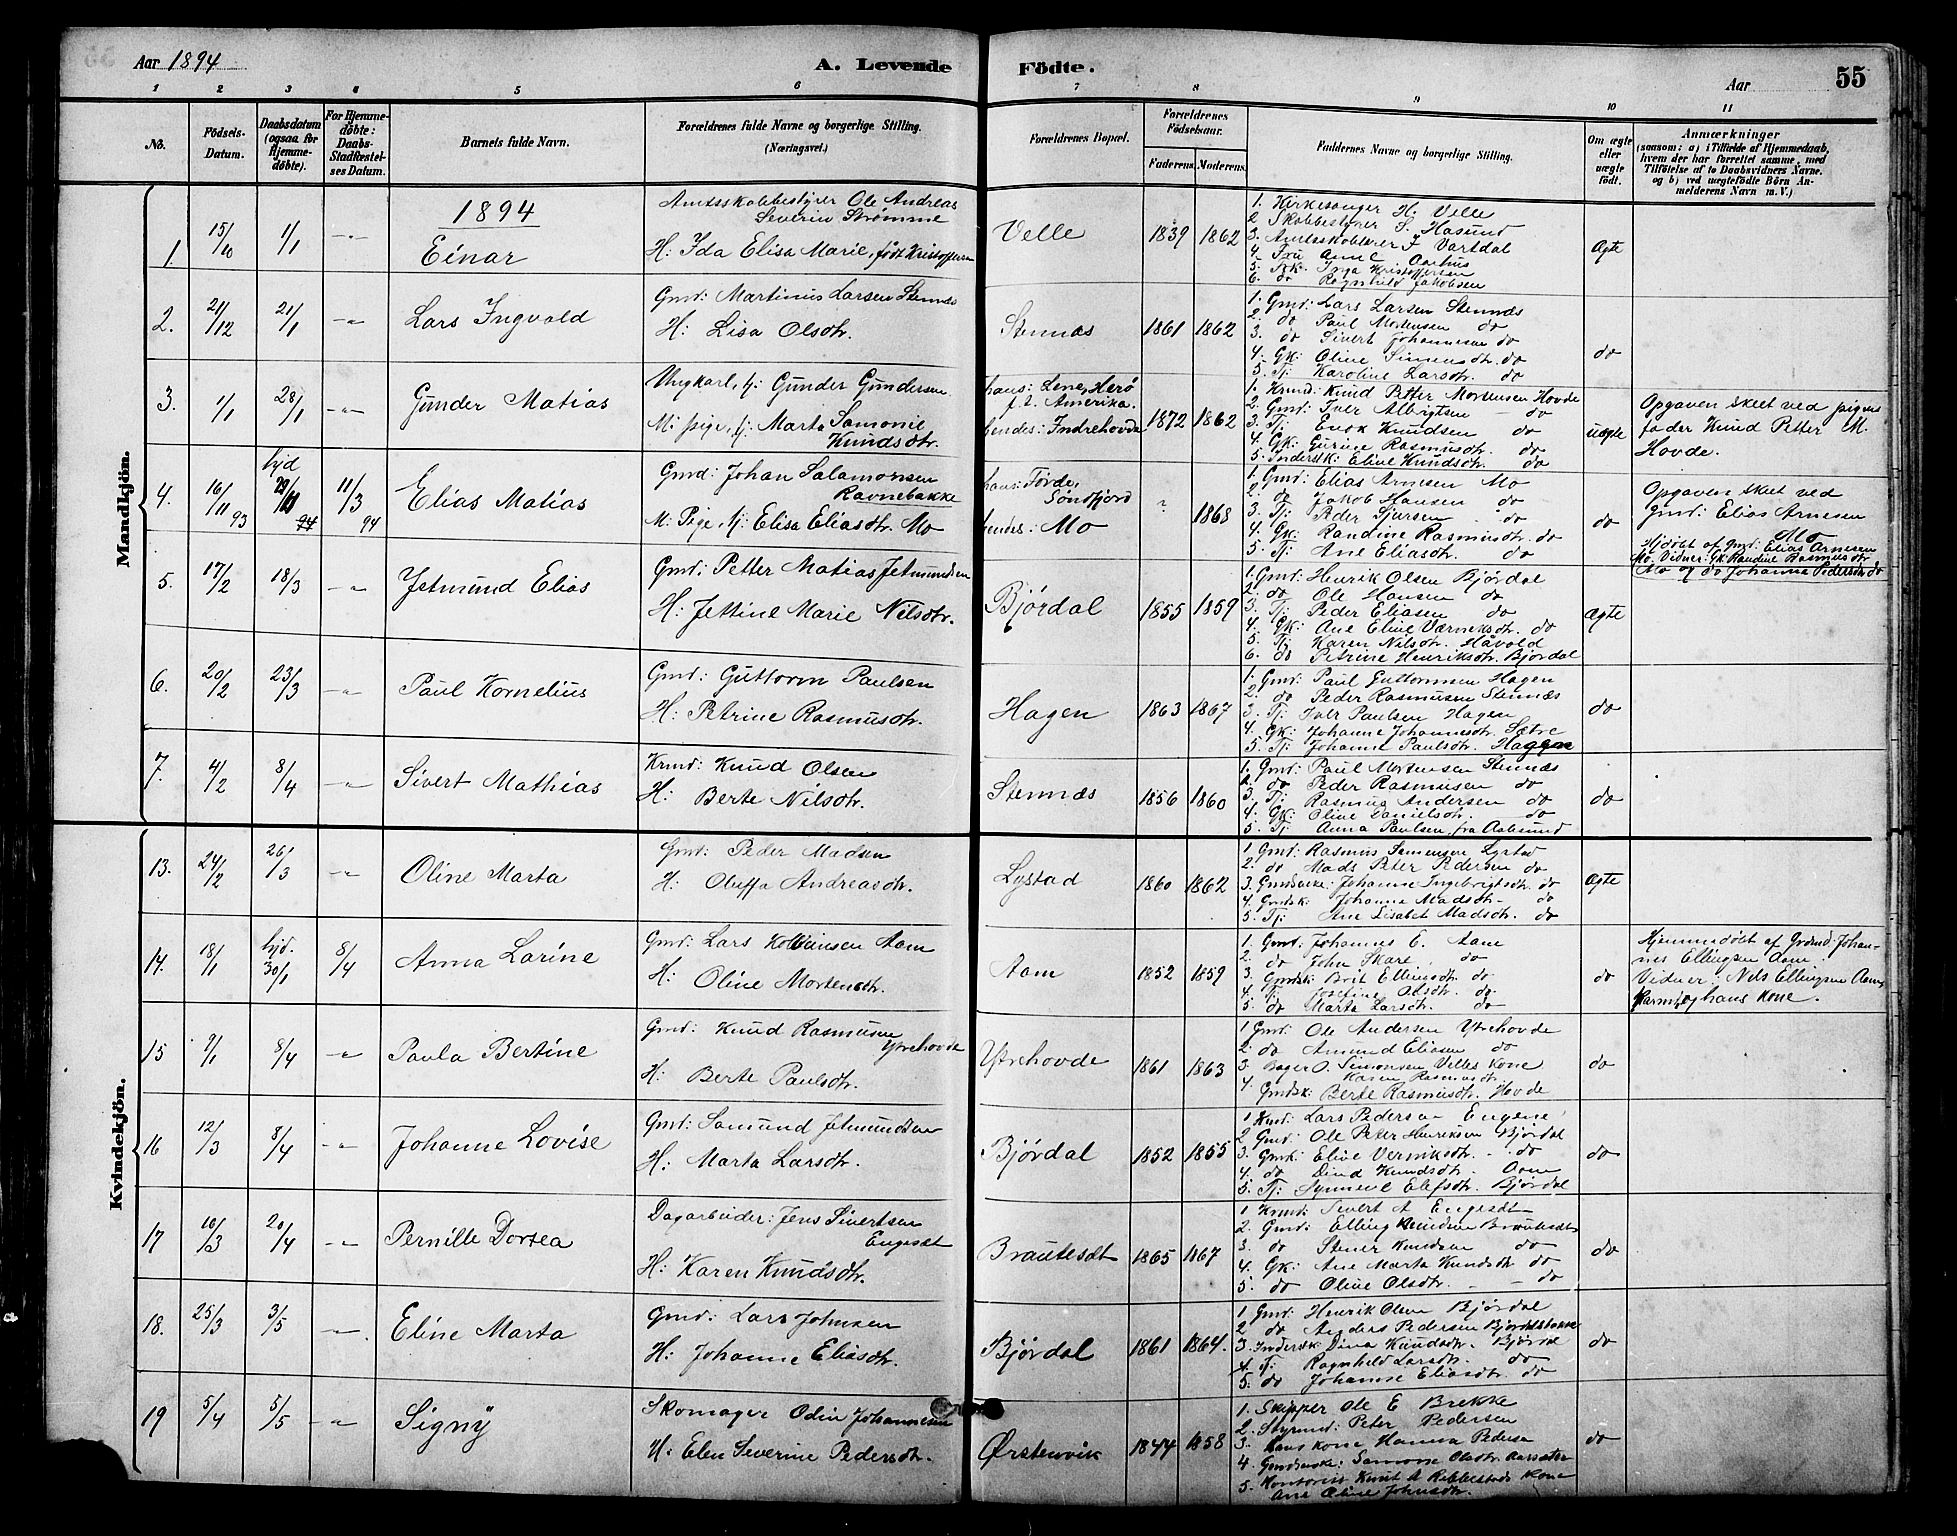 Aar 1894
A. Levende Födte.
Aar
55
1 2 3 4 5 6 7 8 9 10 11
No.
Födsels-Datum.
Daabsdatum (ogsaa for Hjemmedöbte).
For Hjemmedöbte: Daabs-Stadfæstelses Datum.
Barnets fulde Navn.
Forældrenes fulde Navne og borgerlige Stilling. (Næringsvei.)
Forældrenes Bopæl.
Forældrenes Födselsaar.
Faderens. Moderens.
Faddernes Navne og borgerlige Stilling.
Om ægte eller uægte födt.
Anmærkninger
(saasom: a) i Tilfælde af Hjemmedaab,
hvem der har forrettet samme, med
Tilföielse af to Daabsvidners Navne.
og b) ved uægtefödte Börn An-
melderens Navn m. V.)
Mandkjön.
1894
1. 15/10 1/1 -"- Einar
Amtsskobbestyrer Ole Andreas
Severin Strømme
H: Ida Elisa Marie, født Kristoffersen
Velle 1839 1862
1. Kirkesanger H. Velle
2. Skobbestyrer S. Hasund
3. Amtsskolelærer J. Vartdal
4. Fru Anne Aarhus
5. Frk. Inga Kristoffersen
6. do Ragnhild Jakobsen
Ægte
2. 21/12 21/1 -"- Lars Ingvald
Gmd: Martinus Larsen Stennæs
H: Lisa Olsdtr.
Stennæs 1861 1862
1. Gmd: Lars Larsen Stennæs
2. do Paul Mortensen do
3. do Sivert Johannesen do
4. Gk: Oline Simensdtr. do
5. Tj: Karoline Larsdtr. do
do
3. 1/1 28/1 -"- Gunder Matias
Ungkarl, tj: Gunder Gundersen
M: pige, tj: Marta Samonie
Knudsdtr.
hans: Lene, Herø
f. t. Amerika.
hendes: Indrehovde
1872 1862
1. Krmd: Knud Petter Mortensen Hovde
2. Gmd: Iver Albrigtsen - do
3. Tj: Enok Knudsen do
4. Gk: Gurine Rasmusdtr. do
5. Indersk: Eline Knudsdtr. do
uægte
Opgaven skeet ved pigens
fader Knud Petter M.
Hovde.
4. 16/11 93 hjd 29/11 94 11/3 94 Elias Matias
Gmd: Johan Salamonsen
Ravnebakke
M: Pige, tj: Elisa Eliasdtr. Mo
hans: Førde,
Søndfjord
hendes: Mo
" 1868
1. Gmd: Elias Arnesen Mo
2. do Jakob Hansen do
3. Tj: Peder Sjursen do
4. Gk: Randine Rasmusdtr. do
5. Tj: Ane Eliasdtr. do
do
Opgaven skeet ved
Gmd: Elias Arnesen
Mo
Hjdøbt af Gmd: Elias Arnesen
Mo. Vidner: Gk Randine Rasmusdtr
Mo og do Johanna Pedersdtr. do
5. 17/2 18/3 -"- Jetmund Elias
Gmd: Petter Matias Jetmundsen
H: Jettine Marie Nilsdtr.
Bjørdal 1855 1859
1. Gmd: Henrik Olsen Bjørdal
2. do Ole Hansen do
3. Tj: Peder Eliasen do
4. Gk: Ane Eline Værneksdtr. do
5. Tj: Karen Nilsdtr. Håvold
6. do Petrine Henriksdtr. Bjørdal
Ægte
6. 20/2 23/3 -"- Paul Kornelius
Gmd: Guttorm Paulsen
H: Petrine Rasmusdtr.
Hagen 1863 1867
1. Gmd: Paul Guttormsen Hagen
2. do Peder Rasmusen Stennæs
3. Tj: Iver Paulsen Hagen
4. Gk: Johanne Johannesdtr. Sætre
5. Tj: Johanne Paulsdtr. Hagen
do
7. 4/2 8/4 -"- Sivert Mathias
Krmd: Knud Olsen
H: Berte Nilsdtr.
Stennæs 1856 1860
1. Gmd: Paul Mortensen Stennæs
2. do Peder Rasmusen do
3. Tj: Rasmus Andersen do
4. Gk: Oline Danielsdtr. do
5. Tj: Anna Paulsen, fra Aalesund
do
Kvindekjön.
13. 24/2 26/3 -"- Oline Marta
Gmd: Peder Madsen
H: Oluffa Andreasdtr.
Lystad 1860 1862
1. Gmd: Rasmus Samonsen Lystad
2. do Mads Peter Pedersen do
3. Gmdsenke: Johanne Ingebrigtsdtr. do
4. Gmdsk: Johanna Madsdtr. do
5. Tj: Ane Lisabet Madsdtr. do
Ægte
14. 18/1 hjd. 30/1 8/4 Anna Larine
Gmd: Lars Kolbeinsen Aam
H: Oline Mortensdtr.
Aam 1852 1859
1. Gmd: Johannes E. Aam
2. do John Skare do
3. Gmdsk: Brit Ellingsdtr. do
4. Tj: Josefine Olsdtr. do
5. do Marta Larsdtr. do
do
Hjemmedøbt af Grdmd: Johan-
nes Ellingsen Aam.
Vidner: Nels Ellingsen Aam,
og hans Kone.
15 9/1 8/4 -"- Paula Bertine
Gmd: Knud Rasmusen
Ytrehovde
H: Berte Paulsdtr.
Ytrehovde 1861 1863
1. Gmd: Ole Andersen Ytrehovde
2. do Amund Eliasen do
3. Bager O. Simonsen Velles Kone
Karen Rasmusdtr.
4. Gmdsk: Berte Rasmusdtr. Hovde
do
16 12/3 8/4 -"- Johanne Lovise
Gmd: Samund Jetmundsen
H: Marta Larsdtr.
Bjørdal 1852 1855
1. Kmd: Lars Pedersen Engene
2. Gmd: Ole Peter Henriksen Bjørdal
3. Gmdk: Eline Verniksdtr. - do
4. do Dind Knudsdtr. Aam
5. Tj: Synneve Elefsdtr. Bjørdal
do
17 10/3 20/4 -"- Pernille Dorsea
Dagarbeider: Jens Sivertsen
Engesæt
H: Karen Knudsdtr.
Brautesæt 1865 1867
1. Krmd: Sivert A Engesæt
2. Gmd: Elling Knudsen Brautesæt
3. do Stener Knudsen do
4. Gk: Ane Marta Knudsdtr do
5. do Oline Olsdtr. - - do
do
18. 25/3 3/5 -"- Eline Marta
Gmd: Lars Johnsen
H: Johanne Eliasdtr.
Bjørdal 1861 1864.
1. Gmd: Henrik Olsen Bjørdal
2. do Anders Pedersen Bjørdalsbakke
3. Indersk Dina Knudsdtr. Bjørdal
4. Tj: Ragnhild Larsdtr. do
5. do Johanne Eliasdtr. do
do
19 5/4 5/5 -"- Signy
Skomager Odin Johannesen
H: Elen Severine Pedersdtr.
Ørstenvik 1844 1858
1. Skipper Ole E Brekke
2. Styrmd: Peter Pedersen
3. Hans kone Hanna Pedersen
4. Gmdsenke: Samone Olsdtr. Aarsæter
5. Kontorist Knut A Ribbestads Kone
Ane Oline Johnsdtr.
do